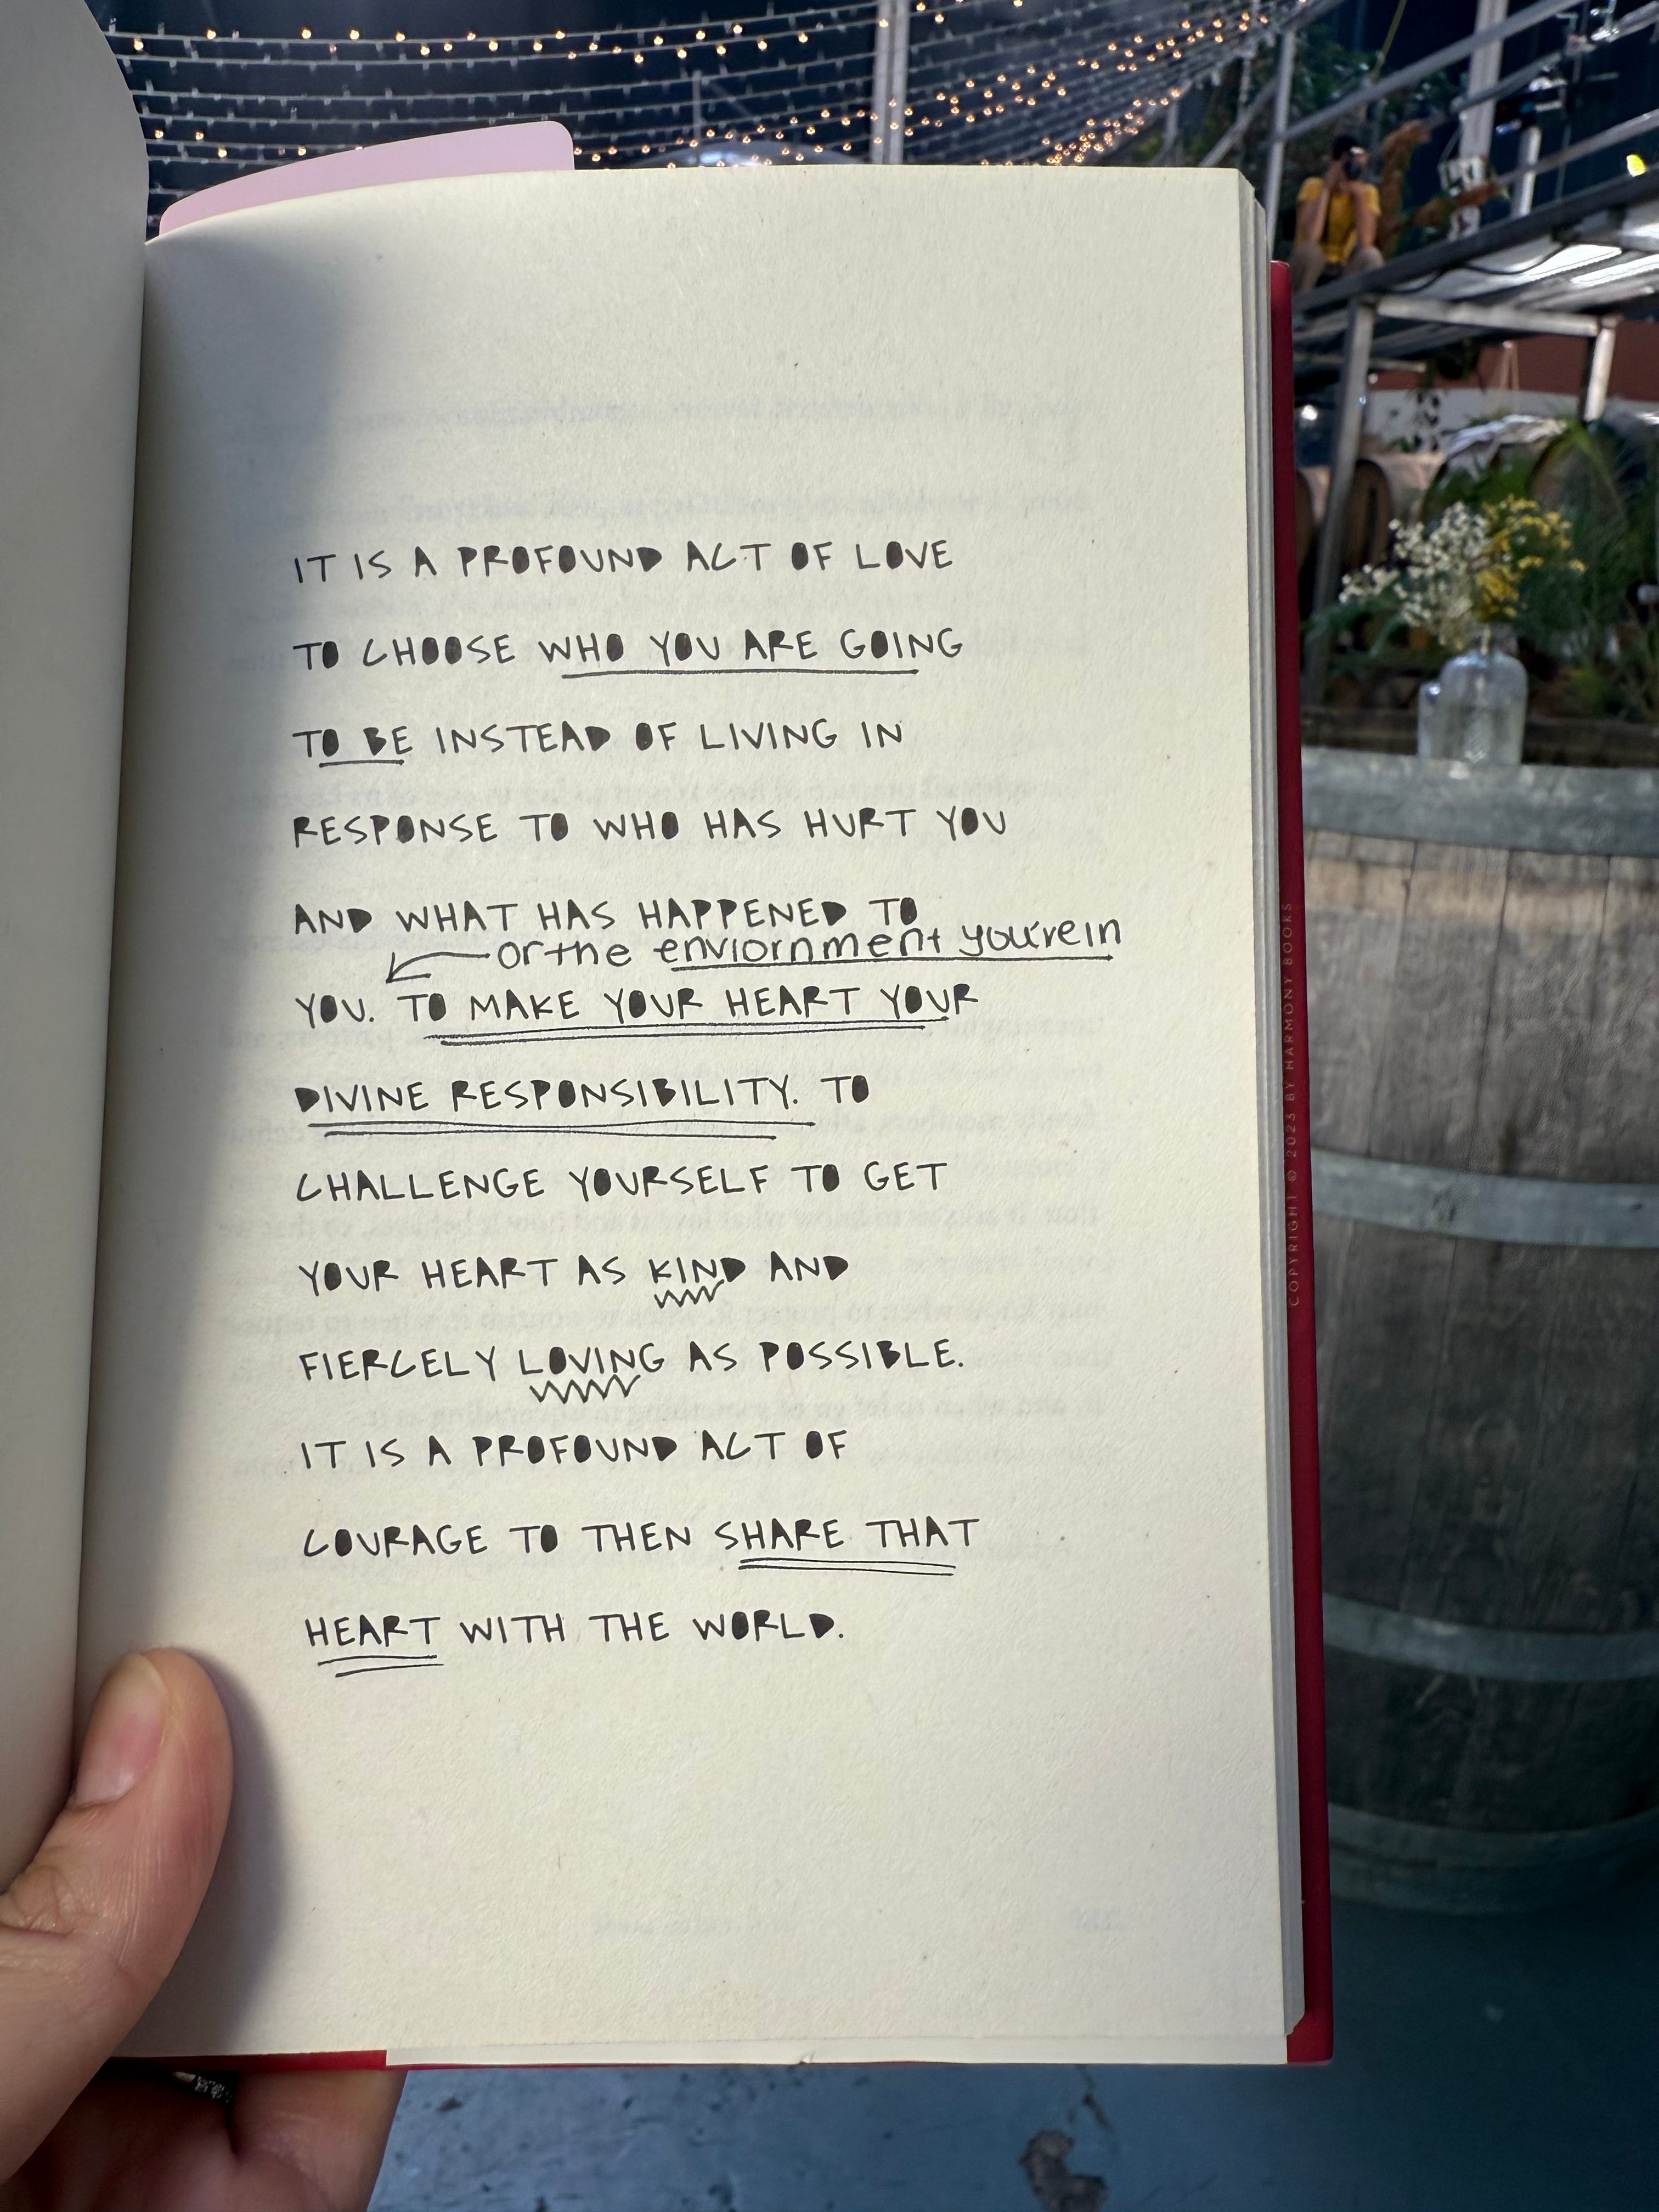 IT IS A PROFOUND ACT OF LOVE
TO CHOOSE WHO YOU ARE GOING
TO BE INSTEAD OF LIVING IN
RESPONSE TO WHO HAS HURT YOU
AND WHAT HAS HAPPENED TO
or the enviornment you're in
YOU. TO MAKE YOUR HEART YOUR
DIVINE RESPONSIBILITY. TO
CHALLENGE YOURSELF TO GET
YOUR HEART AS KIND AND
FIERCELY LOVING AS POSSIBLE.
IT IS A PROFOUND ACT OF
COURAGE TO THEN SHARE THAT
HEART WITH THE WORLD.
COPYRIGHT © 2023 BY HARMONY BOOKS